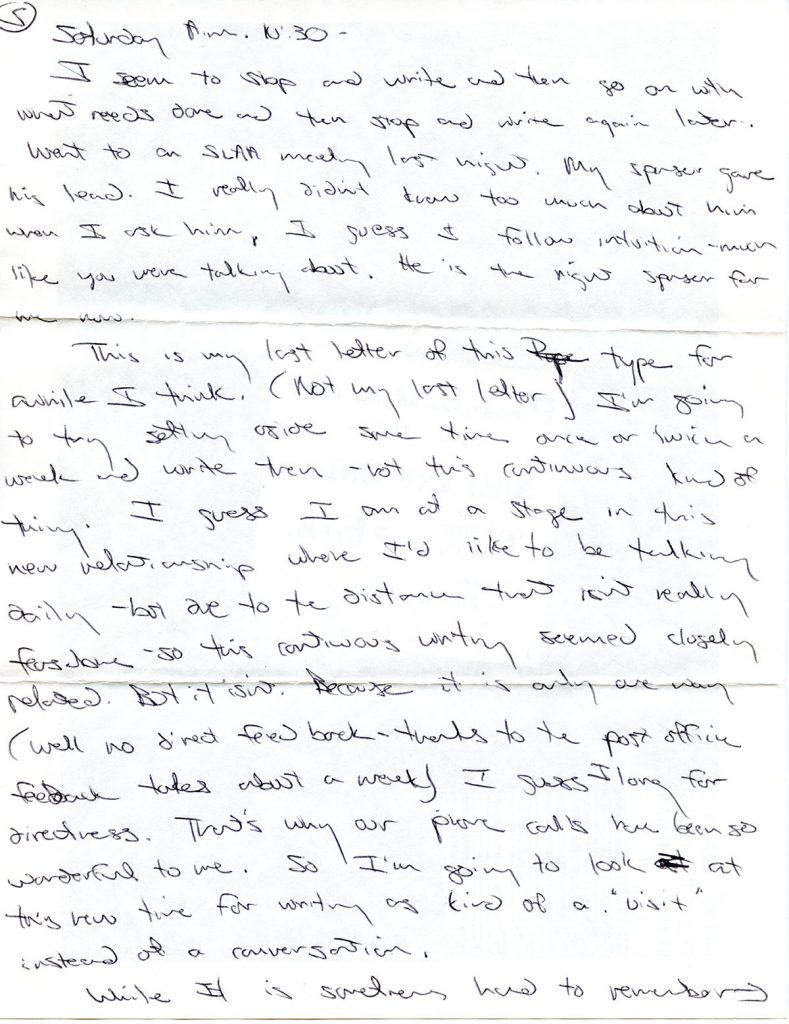 5
Saturday A.m. 10:30 -
I seem to stop and write and then go on with
what needs done and then stop and write again later.
Went to an SLAA meeting last night. My sponser gave
his lead. I really didn't know too much about him
when I ask him, I guess I follow intuition - much
like you were talking about. He is the right sponser for
me now.
This is my last letter of this type for
awhile I think. (Not my last letter) I'm going
to try setting aside some time once or twice a
week and write then - not this continuous kind of
thing. I guess I am at a stage in this
new relationship where I'd like to be talking
daily - but due to the distance that isn't really
- so this continuous writing seemed closely
related. But it isn't. Because it is only one way
(well no direct feed back - thanks to the post office
feedback takes about a week) I guess I long for
directness. That's why our phone calls have been so
wonderful to me. So I'm going to look at
this new time for writing as kind of a "visit"
instead of a conversation.
While It is sometimes hard to remember →